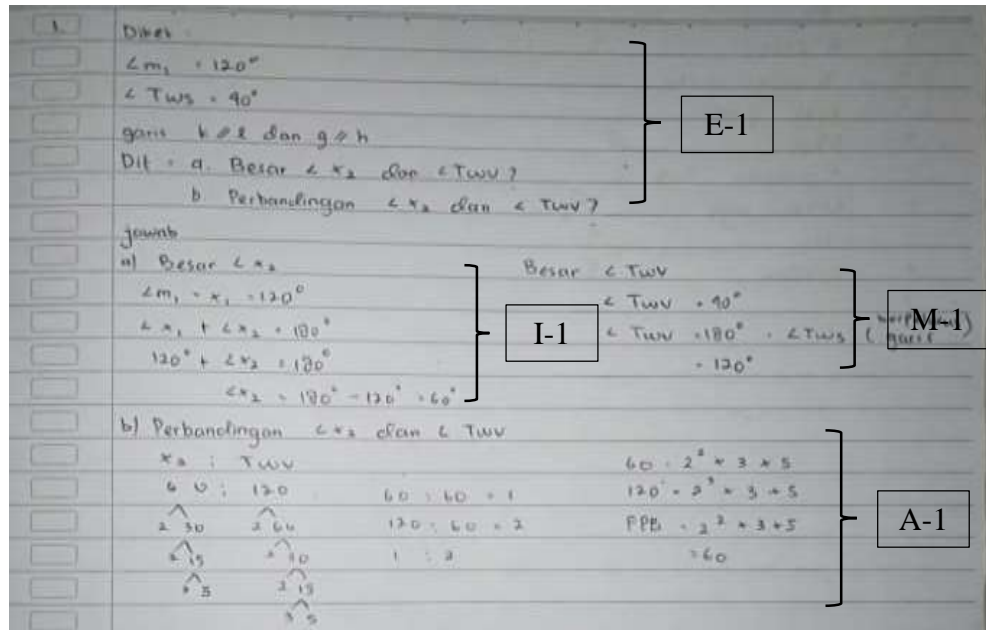 1. Diket :
∠m₁ = 120°
∠TWS = 90°
garis k // l dan g // h
Dit : a. Besar ∠x₂ dan ∠TWV ?
b. Perbandingan ∠x₂ dan ∠TWV ?
E-1
jawab
a) Besar ∠x₂
∠m₁ = x₁ = 120°
∠x₁ + ∠x₂ = 180°
120° + ∠x₂ = 180°
∠x₂ = 180° - 120° = 60°
I-1
Besar ∠TWV
∠TWV = 90°
∠TWV = 180° - ∠TWS ( garis )
= 120°
M-1
b) Perbandingan ∠x₂ dan ∠TWV
x₂ : TWV
60 : 120
2 30 2 60
2 15 2 30
3 5 2 15
3 5
60 : 60 = 1
120 : 60 = 2
1 : 2
60 = 2² * 3 * 5
120 = 2³ * 3 * 5
FPB = 2² * 3 * 5
= 60
A-1